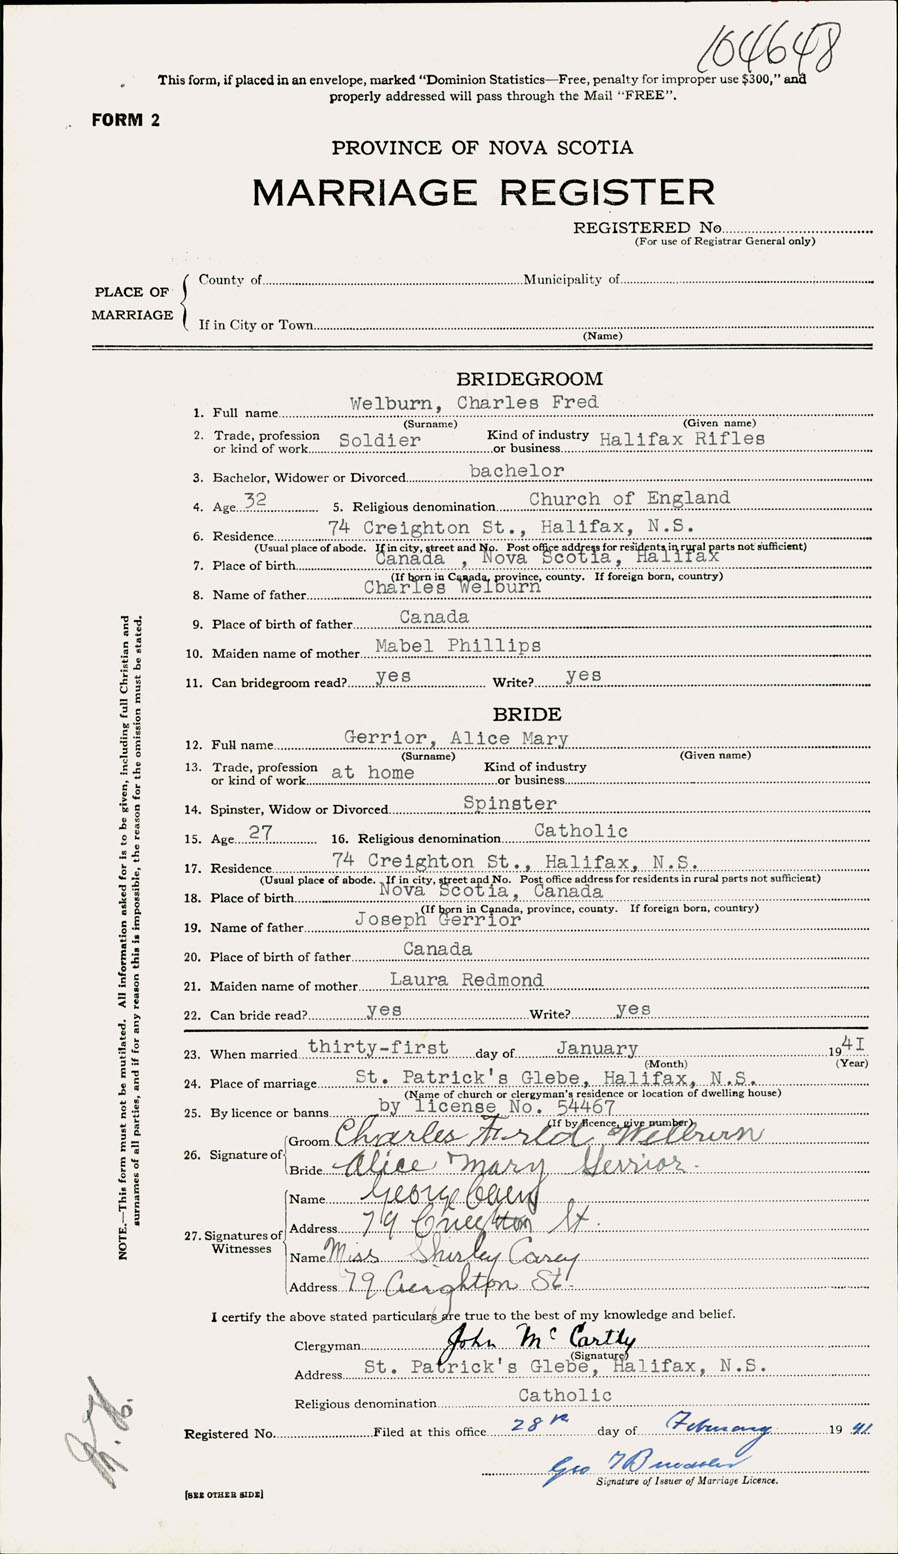 104648
This form, if placed in an envelope, marked "Dominion Statistics—Free, penalty for improper use $300," and
properly addressed will pass through the Mail "FREE".
FORM 2
PROVINCE OF NOVA SCOTIA
MARRIAGE REGISTER
REGISTERED No.
(For use of Registrar General only)
PLACE OF MARRIAGE
County of Municipality of
If in City or Town
(Name)
BRIDEGROOM
1. Full name Welburn, Charles Fred
(Surname) (Given name)
2. Trade, profession or kind of work Soldier Kind of industry or business Halifax Rifles
3. Bachelor, Widower or Divorced bachelor
4. Age 32 5. Religious denomination Church of England
6. Residence 74 Creighton St., Halifax, N.S.
(Usual place of abode. If in city, street and No. Post office address for residents in rural parts not sufficient)
7. Place of birth Canada , Nova Scotia, Halifax
(If born in Canada, province, county. If foreign born, country)
8. Name of father Charles Welburn
9. Place of birth of father Canada
10. Maiden name of mother Mabel Phillips
11. Can bridegroom read? yes Write? yes
BRIDE
12. Full name Gerrior, Alice Mary
(Surname) (Given name)
13. Trade, profession or kind of work at home Kind of industry or business
14. Spinster, Widow or Divorced Spinster
15. Age 27 16. Religious denomination Catholic
17. Residence 74 Creighton St., Halifax, N.S.
(Usual place of abode. If in city, street and No. Post office address for residents in rural parts not sufficient)
18. Place of birth Nova Scotia, Canada
(If born in Canada, province, county. If foreign born, country)
19. Name of father Joseph Gerrior
20. Place of birth of father Canada
21. Maiden name of mother Laura Redmond
22. Can bride read? yes Write? yes
23. When married thirty-first day of January 1941
(Month) (Year)
24. Place of marriage St. Patrick's Glebe, Halifax, N.S.
(Name of church or clergyman's residence or location of dwelling house)
25. By licence or banns by license No. 54467
(If by licence, give number)
26. Signature of
Groom Charles Welburn
Bride Alice Mary Gerrior.
27. Signatures of Witnesses
Name George
Address 79 Creighton St.
Name Miss Shirley Carey
Address 79 Creighton St.
I certify the above stated particulars are true to the best of my knowledge and belief.
Clergyman John McCarthy
(Signature)
Address St. Patrick's Glebe, Halifax, N.S.
Religious denomination Catholic
Registered No. Filed at this office 28th day of February 1941.
Geo
Signature of Issuer of Marriage Licence.
[SEE OTHER SIDE]
NOTE.—This form must not be mutilated. All information asked for is to be given, including full Christian and
surnames of all parties, and if for any reason this is impossible, the reason for the omission must be stated.